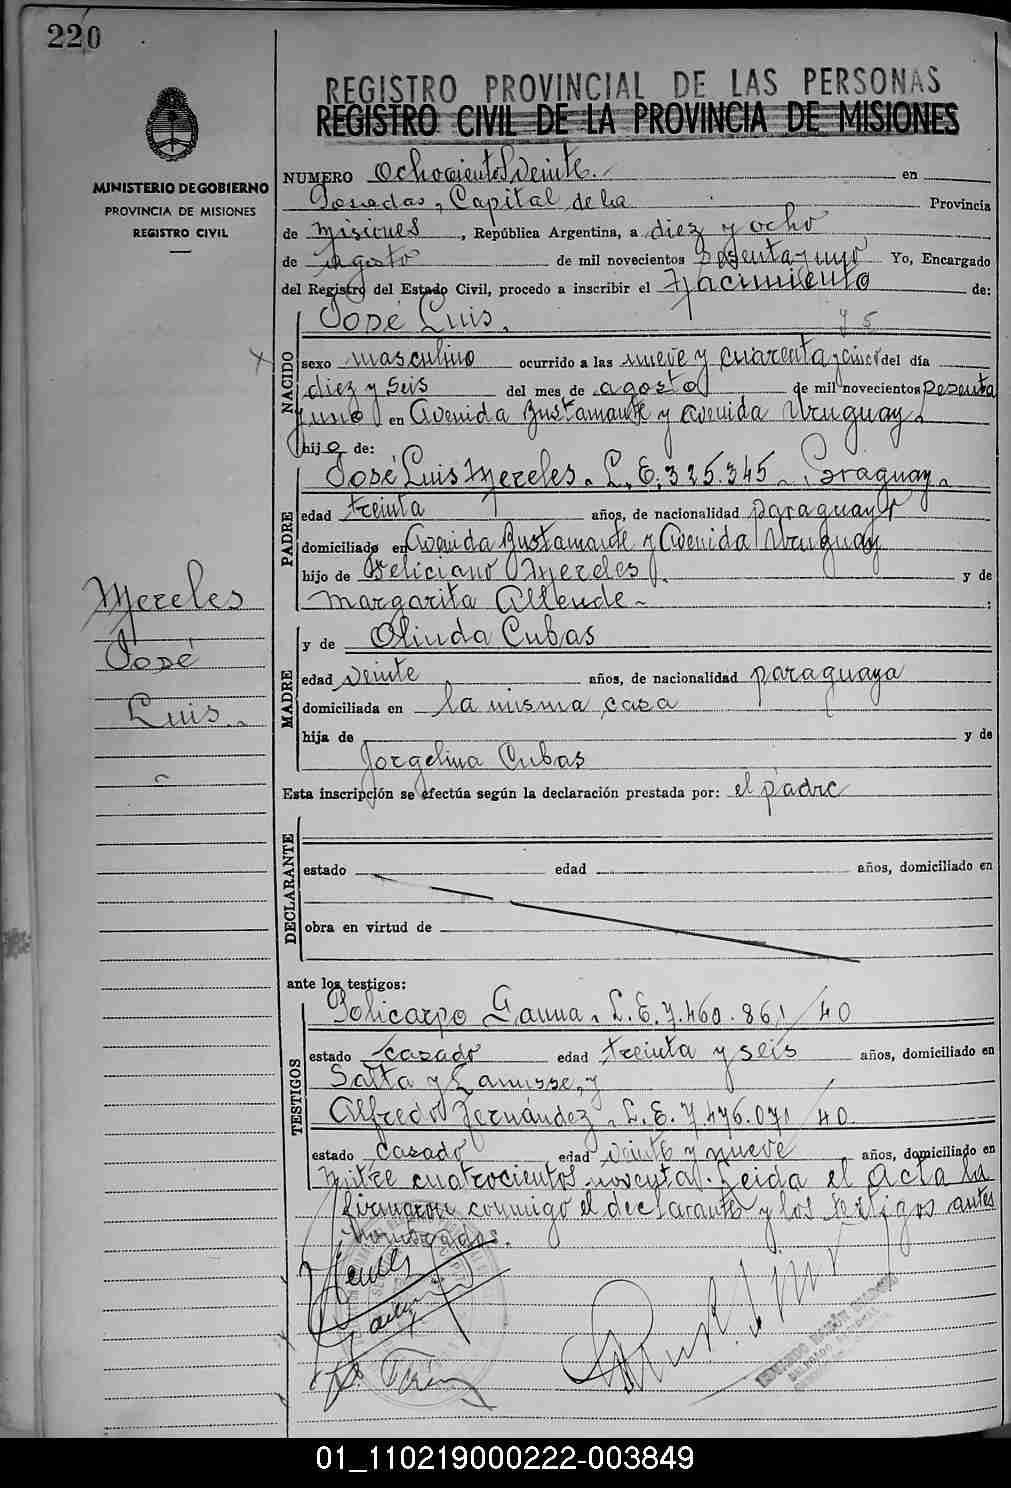 220
REGISTRO PROVINCIAL DE LAS PERSONAS
REGISTRO CIVIL DE LA PROVINCIA DE MISIONES
MINISTERIO DE GOBIERNO
PROVINCIA DE MISIONES
REGISTRO CIVIL
NUMERO Ochocientos veinte.- en
Posadas, Capital de la Provincia
de Misiones, República Argentina, a diez y ocho
de Agosto de mil novecientos sesenta y uno Yo, Encargado
del Registro del Estado Civil, procedo a inscribir el Nacimiento de:
NACIDO
José Luis.
sexo masculino ocurrido a las nueve y cuarenta y cinco del día
diez y seis del mes de agosto de mil novecientos sesenta
y uno en Avenida Bustamante y Avenida Uruguay.
hijo de:
PADRE
José Luis Mereles. L.E. 325.345. Paraguay.
edad treinta años, de nacionalidad paraguaya
domiciliado en Avenida Bustamante y Avenida Uruguay
hijo de Feliciano Mereles y de
Margarita Allende.
Mereles
José
Luis.
MADRE
y de Olinda Cubas
edad veinte años, de nacionalidad paraguaya
domiciliada en la misma casa
hija de y de
Jorgelina Cubas
Esta inscripción se efectúa según la declaración prestada por: el padre
DECLARANTE
estado edad años, domiciliado en
obra en virtud de
ante los testigos:
TESTIGOS
Policarpo Gauna. L.E. 7.460.861/40
estado casado edad treinta y seis años, domiciliado en
Salta y Lanusse, y
Alfredo Fernández. L.E. 7.476.071/40
estado casado edad veinte y nueve años, domiciliado en
Mitre cuatrocientos noventa. Leida el Acta la
firmaron conmigo el declarante y los testigos antes
nombrados.
01_110219000222-003849